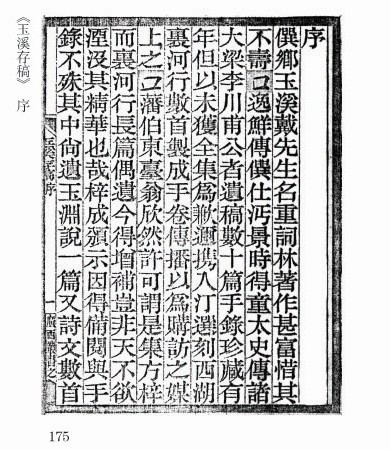 序
僕鄉玉溪戴先生名重詞林著作甚富惜其
不壽逸鮮傳僕仕沔景時得童太史傳諸
大梁李川甫公者遺稿數十篇手錄珍藏有
年但以未獲全集爲歉邇攜入汀刻西湖
裏河行數首製成手卷傳播以爲購訪之媒
上之潘伯東臺翁欣然許可謂是集方梓
而裏河行長篇偶遺今得增補豈非天不欲
湮沒其精華也哉梓成頒示因得備閱與手
錄不殊其中尙遺玉淵說一篇又詩文數首
玉溪存稿序
一
《玉溪存稿》 序
175